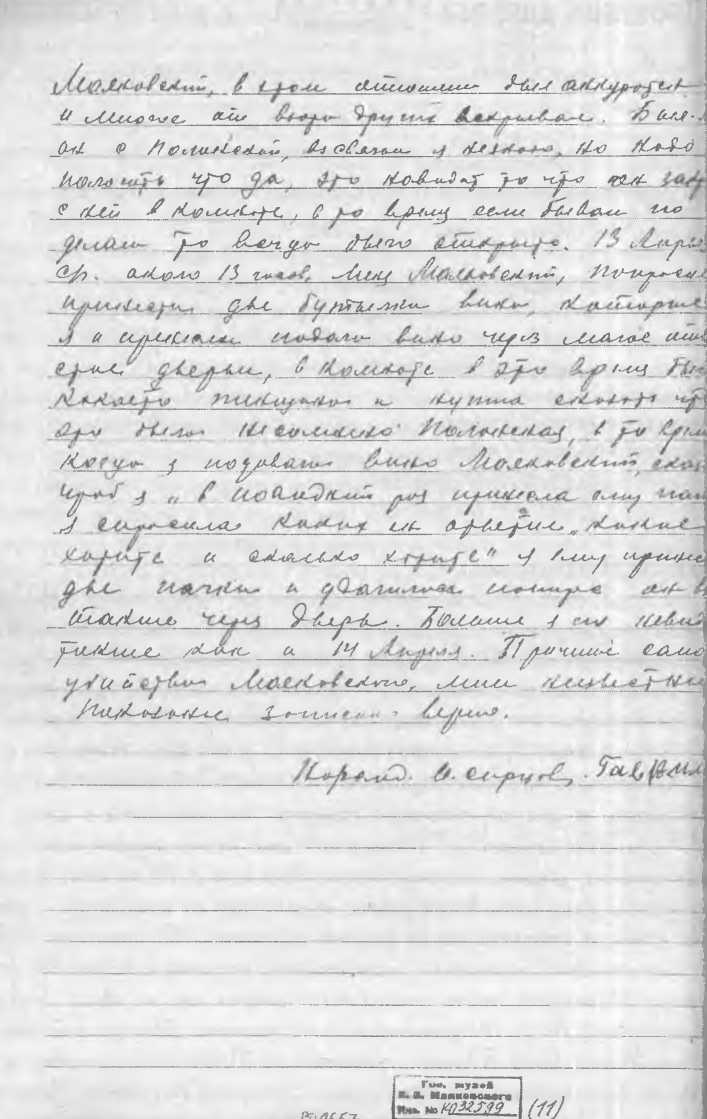 Маяковский, в этом отношении был аккуратен
и многое от взоров других вскрывал. Была
он с Полонской, в связи я незнаю, но надо
пологать что да, это
с ней в комнате, в то время если бывали по
делам то всегда было открыто. 13 Апреля
ср. около 13 часов, меня Маяковский, попросил
принести две бутылки вина, которые
я и принесла подала вино через малое от
стие дверы, в комнате в это время был
какаято женщина и нужно сказать что
это была несомненно Полонская, в то время
когда я подавала вино Маяковский, сказ
чтоб я „в последний раз принесла ему пап
я спросила каких он ответил „какие
хотите и сколько хотите" я ему прине
две пачки и
также через дверь. Больше я его невид
также как и 14 Апреля. Причина само
убийства Маяковского, мне неизвестны
Показание записано верно.
И. Сырцов. Гаврил
Гос. музей
В. В. Маяковского
Инв. № КП32599 (11)